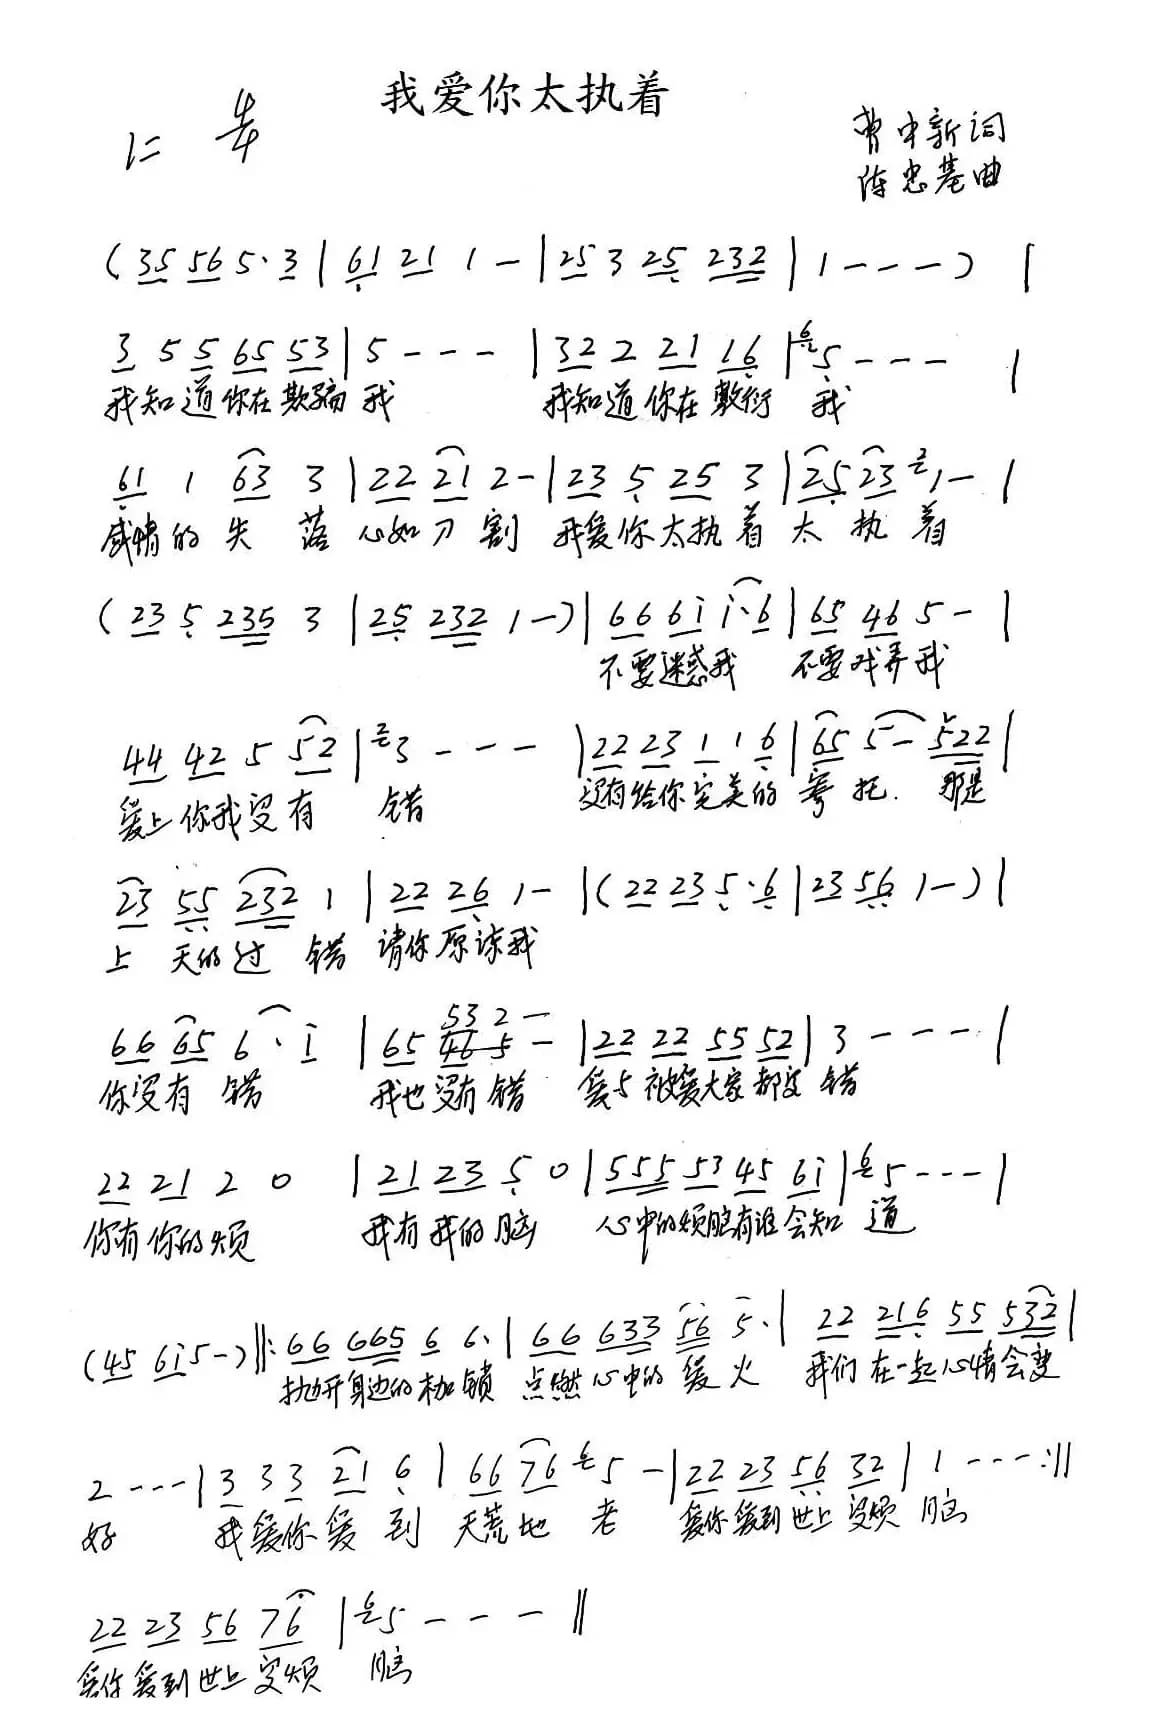 我爱你太执着
1= 4/4
曹中新词
陈忠基曲
(35 56 5·3|61 21 1 -|25 3 25 232|1 - - -)|
3 5 5 65 53|5 - - -|32 2 21 16|65 - - -|
我知道你在欺骗我 我知道你在敷衍 我
61 1 63 3|22 21 2 -|23 5 25 3|25 23 21 -|
感情的失 落 心如刀割 我爱你太执着 太 执 着
(23 5 235 3|25 232 1 -)|66 6i i·6|65 46 5 -|
不要迷惑我 不要戏弄我
44 42 5 52|23 - - -|22 23 1 1 6|65 5 - 522|
爱上你我没有 错 没有给你完美的 寄托. 那是
23 55 232 1|22 26 1 -|(22 23 5·6|23 56 1 -)|
上 天的过 错 请你原谅我
53 2 -
66 65 6·i|65 46 5 -|22 22 55 52|3 - - -|
你没有 错 我也没有错 爱与被爱大家都没 错
22 21 2 0|21 23 5 0|555 53 45 6i|65 - - -|
你有你的烦 我有我的脑 心中的烦脑有谁会知 道
(45 6i 5 -)||:66 665 6 6·|66 633 56 5·|22 216 55 532|
抛开身边的枷锁 点燃心中的 爱火 我们在一起心情会变
2 - - -|3 3 3 21 6|66 76 65 -|22 23 56 32|1 - - -:||
好 我爱你爱 到 天荒地 老 爱你爱到世上没烦 脑
22 23 56 76|65 - - -||
爱你爱到世上没烦 脑